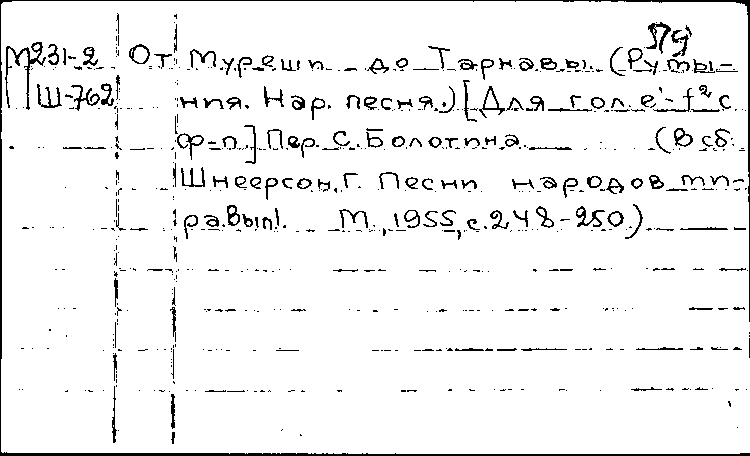 579
М231-2 От Муреши до Тарнавы. (Румы-
Ш-762 ния. Нар. песня.) [Для гол. e'-f² с
ф-п.] Пер. С. Болотина (В сб.
Шнеерсон, Г. Песни народов ми-
ра. Вып 1. М., 1955, с. 248-250.)